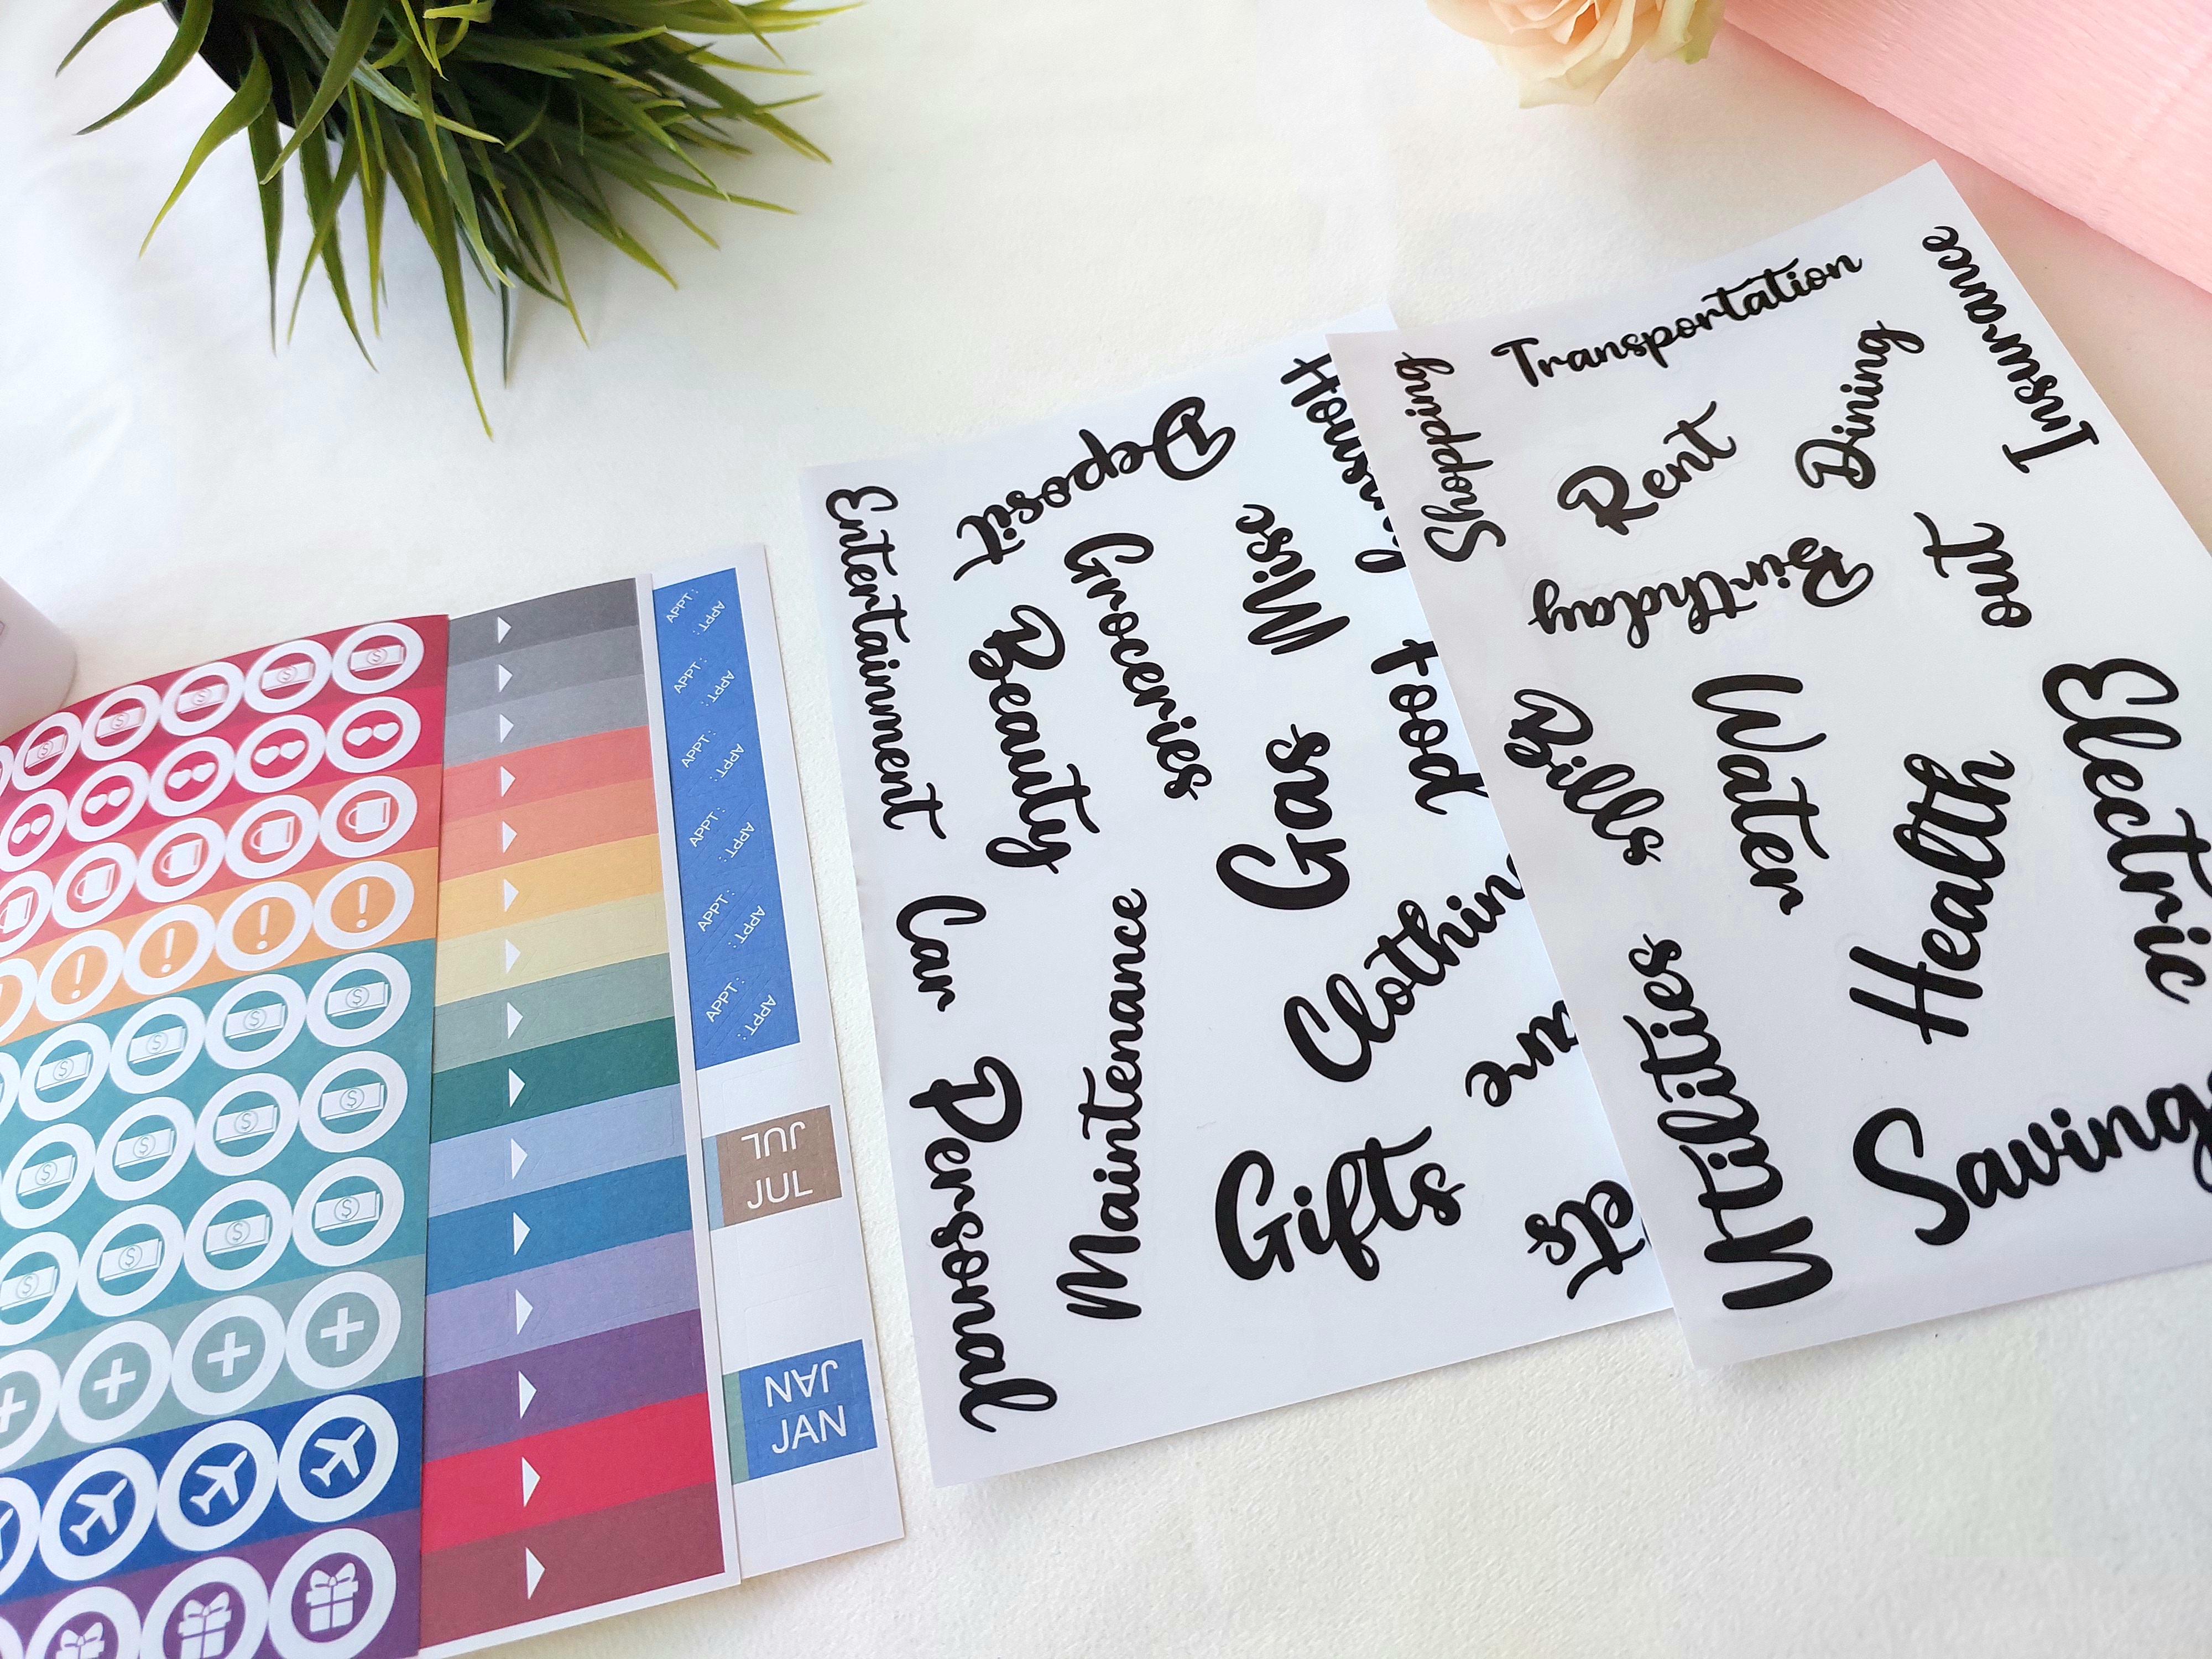 APPT: APPT:
APPT: APPT:
APPT: APPT:
APPT: APPT:
APPT: APPT:
APPT: APPT:
JUL
JUL
JAN
JAN
Entertainment
Deposit
Groceries
Beauty
Misc
Gas
Food
Car
Maintenance
Clothing
Personal
Gifts
Shopping
Transportation
Insurance
Rent
Dining
Birthday
out
Bills
Water
Electric
Health
Utilities
Saving